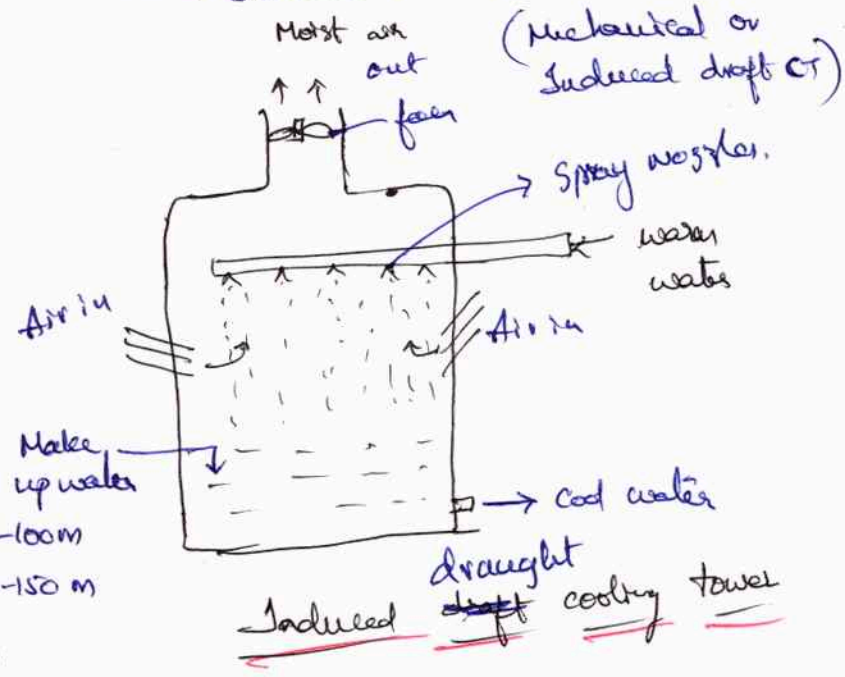 Moist air
out
(Mechanical or
Induced draft CT)
fan
Spray nozzles.
warm
water
Air in
Air in
Make
up water
-100m
-150 m
Cool water
draught
Induced draft cooling tower